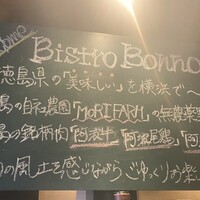 Bistro Bonno
徳島県の「美味しい」を横浜で〜
島の自社農園「MORI FARM」の無農薬
島の銘柄肉「阿波牛」「阿波尾鶏」「阿
の風土を感じながらごゆっくりお楽